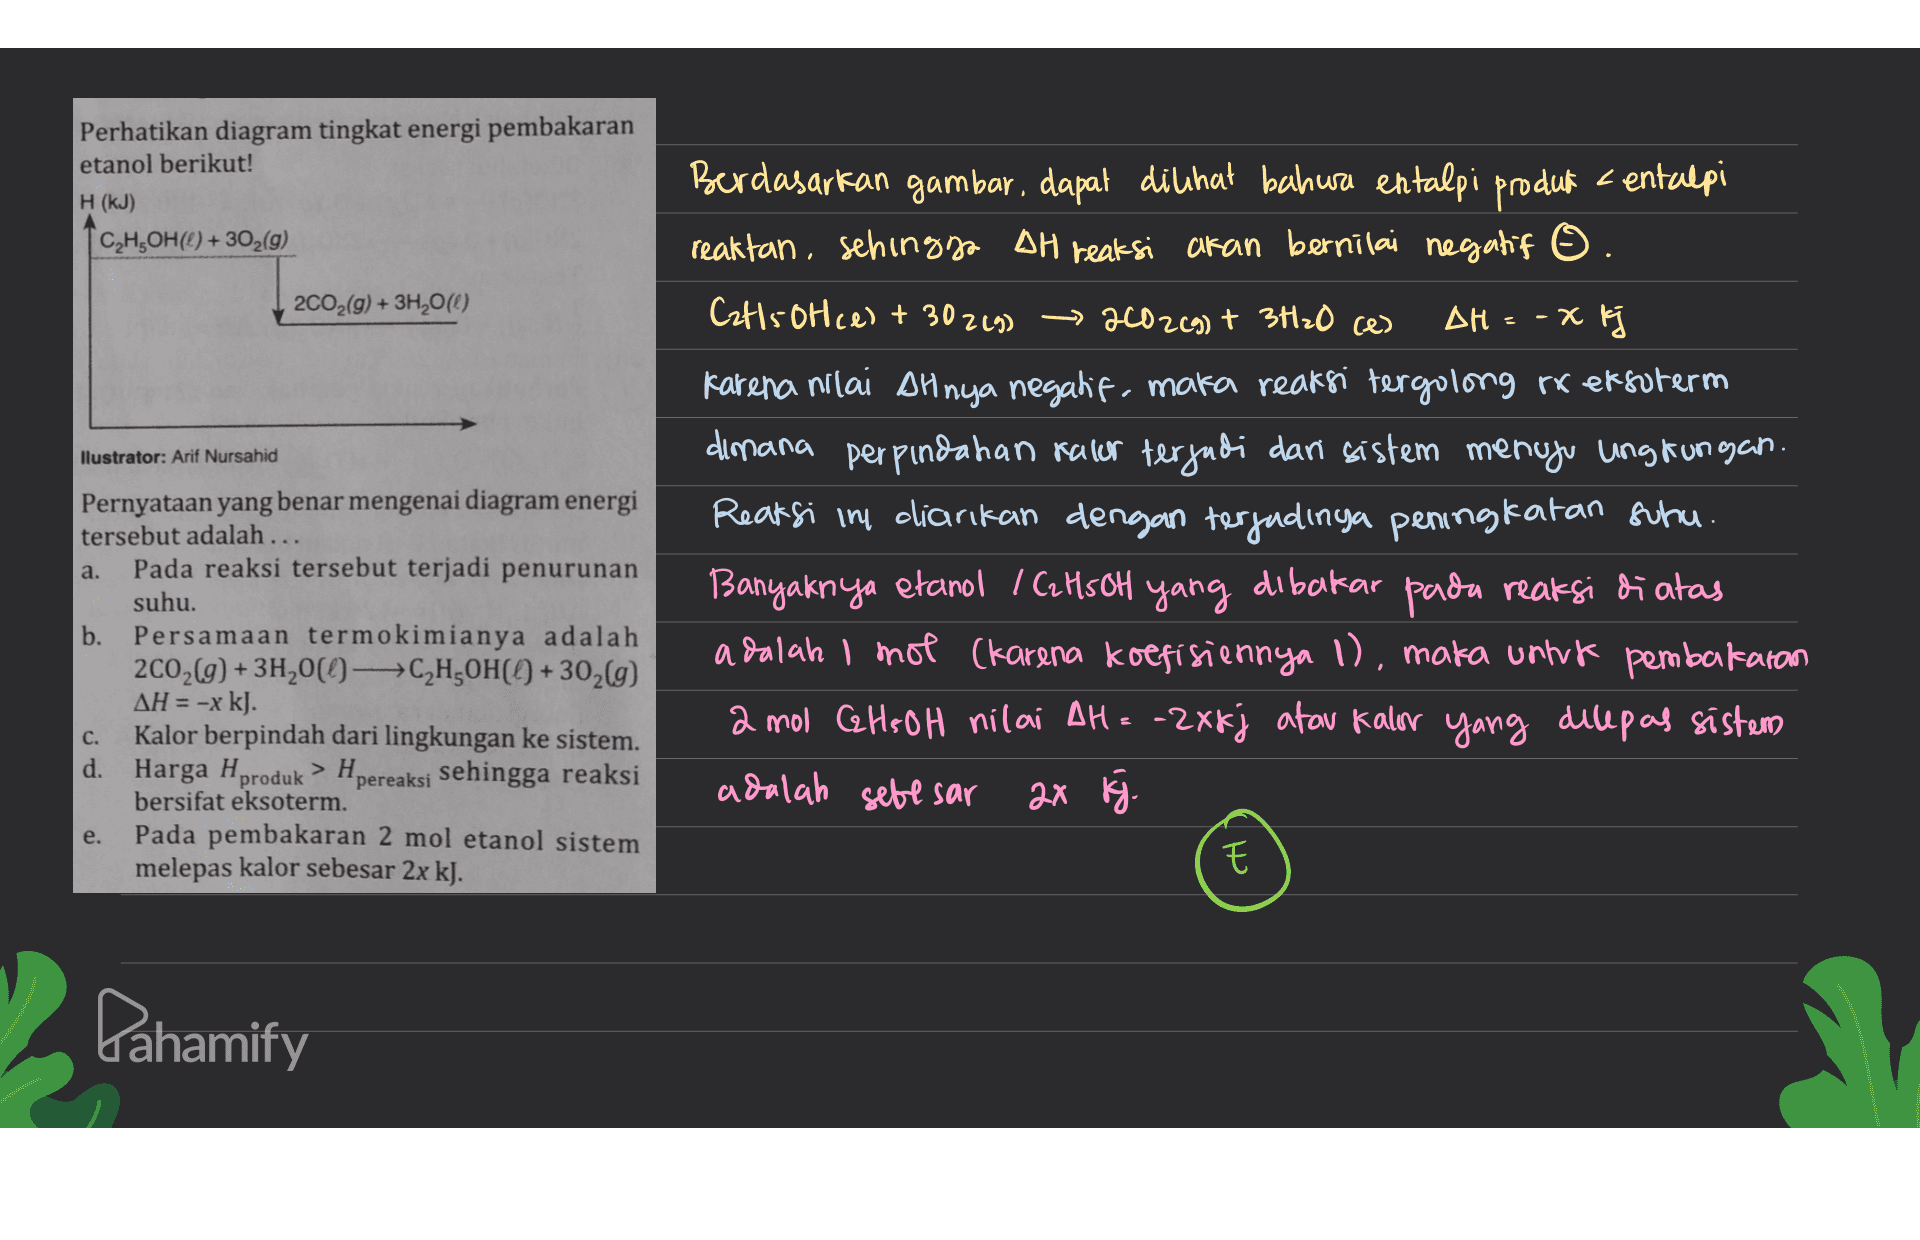 Perhatikan diagram tingkat energi pembakaran
etanol berikut!
H (kJ)
C₂H₅OH(ℓ) + 3O₂(g)
2CO₂(g) + 3H₂O(ℓ)
Ilustrator: Arif Nursahid
Pernyataan yang benar mengenai diagram energi
tersebut adalah . . .
a. Pada reaksi tersebut terjadi penurunan
suhu.
b. Persamaan termokimianya adalah
2CO₂(g) + 3H₂O(ℓ) ⟶ C₂H₅OH(ℓ) + 3O₂(g)
ΔH = –x kJ.
c. Kalor berpindah dari lingkungan ke sistem.
d. Harga H produk > H pereaksi sehingga reaksi
bersifat eksoterm.
e. Pada pembakaran 2 mol etanol sistem
melepas kalor sebesar 2x kJ.
Berdasarkan gambar, dapat dilihat bahwa entalpi produk < entalpi
reaktan, sehingga ΔH reaksi akan bernilai negatif ⊖.
C₂H₅OH(ℓ) + 3O₂(g) → 2CO₂(g) + 3H₂O(ℓ) ΔH = -x kj
karena nilai ΔHnya negatif, maka reaksi tergolong rx eksoterm
dimana perpindahan kalor terjadi dari sistem menuju lingkungan.
Reaksi ini dicirikan dengan terjadinya peningkatan suhu.
Banyaknya etanol / C₂H₅OH yang dibakar pada reaksi di atas
adalah 1 mol (karena koefisiennya 1), maka untuk pembakaran
2 mol C₂H₅OH nilai ΔH = -2xkj atau kalor yang dilepas sistem
adalah sebesar 2x kj.
E
Pahamify